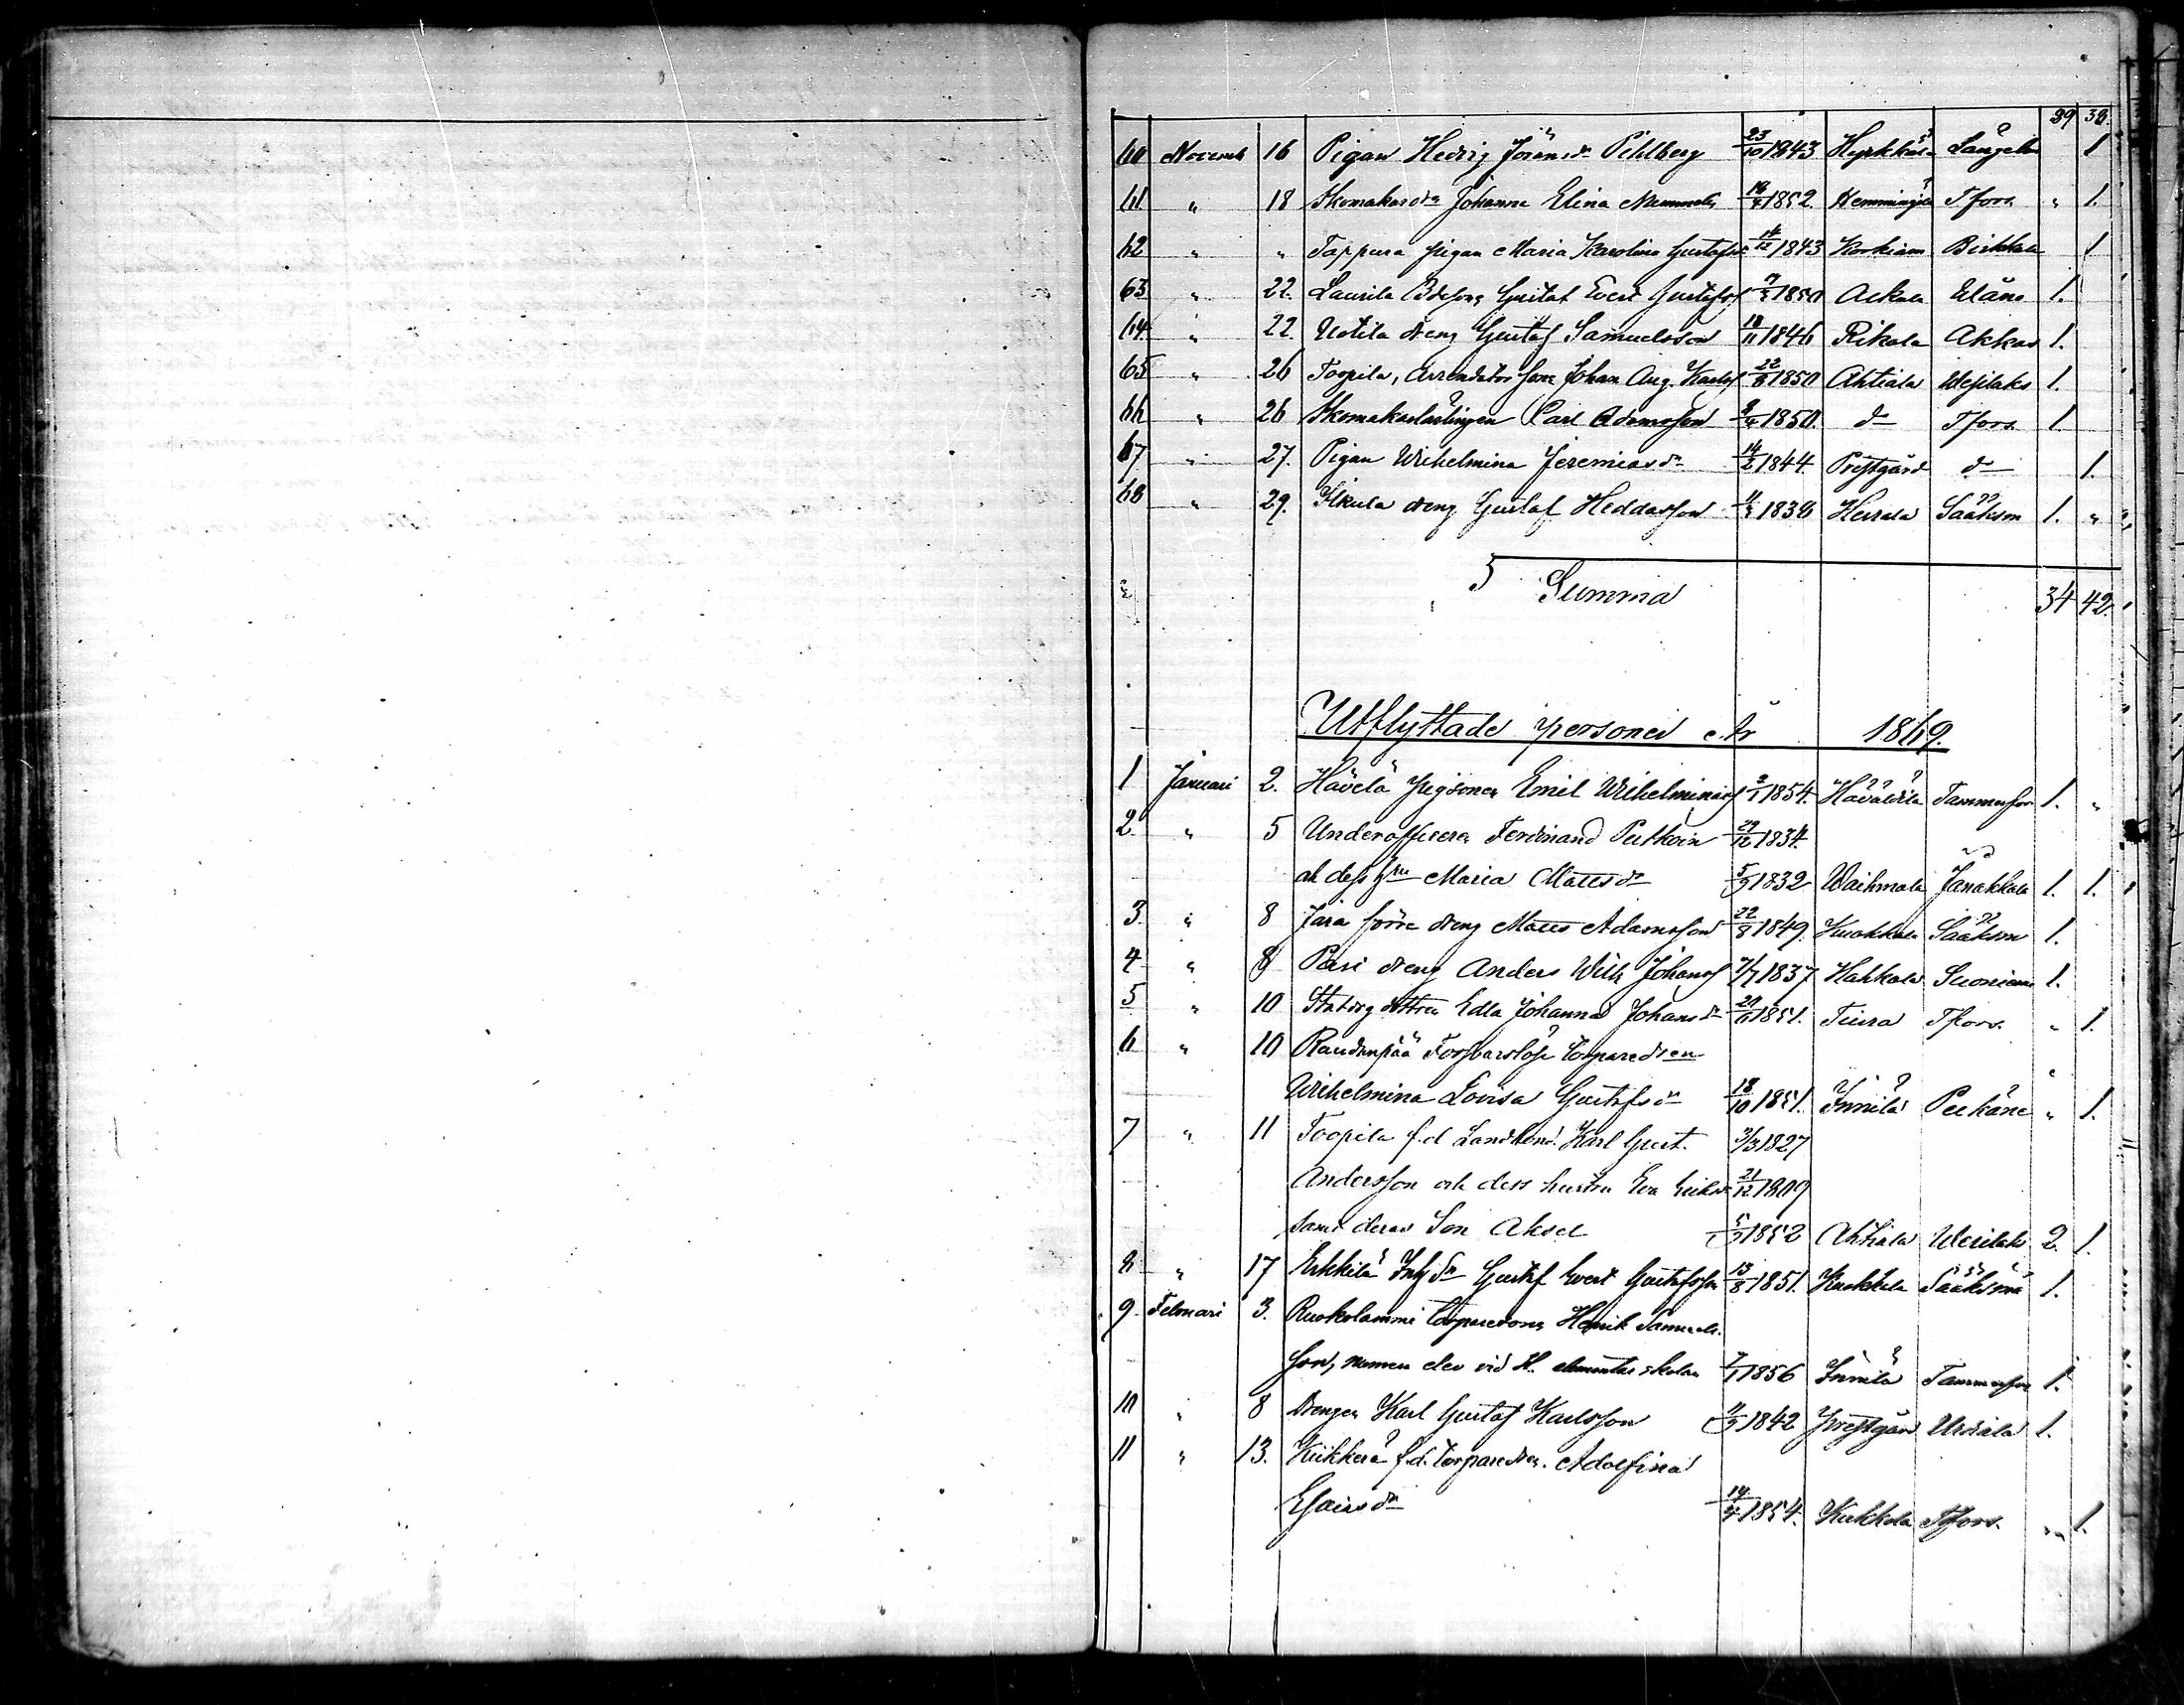 29 36.
60 Novemb 16 Pigan Hedvig Jöransdr Pihlberg 23/10 1843 Hyrkkälä Längelm 1
61 " 18 Skomakardr Johanna Elina 1852. Hemmingilä Tfors " 1.
62 " " Tappura pigan Maria Karolina Gustafsdr 14/12 1843 Birkkala 1
63 " 22. Laurila Gustaf Evert Gustafss 1850 Uläns 1.
64. " 22. Uotila dreng Gustaf Samuelsson 18/11 1846 Rikala Akkas 1.
65 " 26 Toopila, Arrendators sone Johan Aug. Karlss 22/8 1850 Ahtiala Wesilaks 1.
66 " 26 Skomakarlärlingen Carl Adamsson 1850. do Tfors. 1.
67 " 27. Pigan Wilhelmina Jeremiasdr 14/2 1844. Prestgård do 1.
68 " 29. Ilkula dreng Gustaf Heddasson 1838 Herrala Sääksm 1. "
Summa 34 42.
Utflyttade personer År 1869.
1 Januari 2. Hävelä pigsonen Emil Wilhelminass 2/1 1854. Tammerfors 1. "
2. " 5 Underofficeren Ferdinand Putkoin 29/12 1834.
ok dess hru Maria Mattsdr 5/9 1832 Waihmala Janakkala 1. 1.
3. " 8 Jära förre dreng Matts Adamsson 22/8 1849. Kuokkala Sääksm 1.
4 " 8 Pasi dreng Anders Wilh Johanss 7/7 1837 Hahkala Suoniemi 1.
5 " 10 dottren Edla Johanna Johansdr 1851. Tiura Tfors. " 1.
6 " 10 Raudanpää Torparedren
Wilhelmina Lovisa Gustafsdr 18/10 1851. Innilä Pelkäne " 1.
7 " 11 Toopila f.d Landbond. Karl Gust. 3/3 1827
Andersson och dess hustru Eva Eriksdr 21/12 1809
samt deras Son Aksel 1852 Ahtiala Wesilak 2. 1.
8 " 17 Erkkilä Gustaf Evert Gustafsson 13/8 1851. Kuokkala Sääksmä 1.
9. Februari 3. Ruokolammi torparesons Henrik Samuels-
son, numera elev vid H. elementar skolan 7/1 1856 Innilä Tammerfors 1.
10 " 8 Drengen Karl Gustaf Karlsson 1842 Prestgård Urdiala 1.
11 " 13. f.d. torparedtr. Adolfina
Esaiasdr 14/4 1854. Kukkola Tfors. " 1.